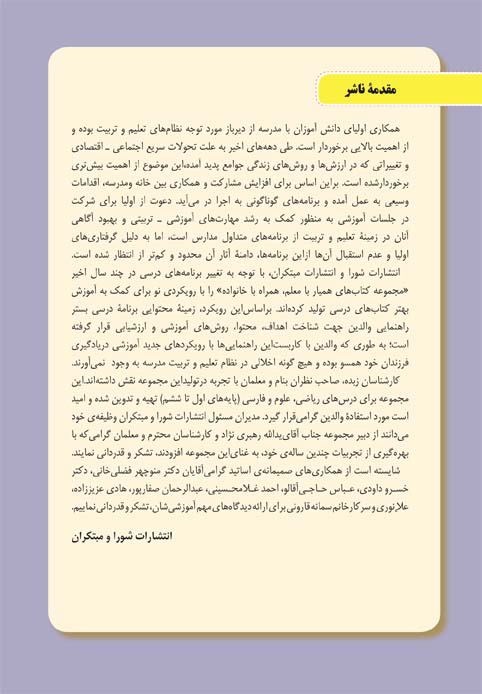 مقدمهٔ ناشر
همکاری اولیای دانش آموزان با مدرسه از دیرباز مورد توجه نظام‌های تعلیم و تربیت بوده و
از اهمیت بالایی برخوردار است. طی دهه‌های اخیر به علت تحولات سریع اجتماعی ـ اقتصادی
و تغییراتی که در ارزش‌ها و روش‌های زندگی جوامع پدید آمده،این موضوع از اهمیت بیش‌تری
برخوردارشده است. براین اساس برای افزایش مشارکت و همکاری بین خانه ومدرسه، اقدامات
وسیعی به عمل آمده و برنامه‌های گوناگونی به اجرا در می‌آید. دعوت از اولیا برای شرکت
در جلسات آموزشی به منظور کمک به رشد مهارت‌های آموزشی ـ تربیتی و بهبود آگاهی
آنان در زمینهٔ تعلیم و تربیت از برنامه‌های متداول مدارس است، اما به دلیل گرفتاری‌های
اولیا و عدم استقبال آن‌ها ازاین برنامه‌ها، دامنهٔ آثار آن محدود و کم‌تر از انتظار شده است.
انتشارات شورا و انتشارات مبتکران، با توجه به تغییر برنامه‌های درسی در چند سال اخیر
«مجموعه کتاب‌های همیار با معلم، همراه با خانواده» را با رویکردی نو برای کمک به آموزش
بهتر کتاب‌های درسی تولید کرده‌اند. براساس‌این رویکرد، زمینهٔ محتوایی برنامهٔ درسی بستر
راهنمایی والدین جهت شناخت اهداف، محتوا، روش‌های آموزشی و ارزشیابی قرار گرفته
است؛ به طوری که والدین با کاربست‌این راهنمایی‌ها با رویکردهای جدید آموزشی دریادگیری
فرزندان خود همسو بوده و هیچ گونه اخلالی در نظام تعلیم و تربیت مدرسه به وجود نمی‌آورند.
کارشناسان زبده، صاحب نظران بنام و معلمان با تجربه درتولیداین مجموعه نقش داشته‌اند.این
مجموعه برای درس‌های ریاضی، علوم و فارسی (پایه‌های اول تا ششم) تهیه و تدوین شده و امید
است مورد استفادهٔ والدین گرامی‌قرار گیرد. مدیران مسئول انتشارات شورا و مبتکران وظیفه‌ی خود
می‌دانند از دبیر مجموعه جناب آقای‌یدالله رهبری نژاد و کارشناسان محترم و معلمان گرامی‌که با
بهره‌گیری از تجربیات چندین ساله‌ی خود، به غنای‌این مجموعه افزودند، تشکر و قدردانی نمایند.
شایسته است از همکاری‌های صمیمانه‌ی اساتید گرامی‌آقایان دکتر منوچهر فضلی‌خانی، دکتر
خسرو داودی، عباس حاجی‌آقالو، احمد غلامحسینی، عبدالرحمان صفارپور، هادی عزیززاده،
علا‌نوری و سرکارخانم سمانه قارونی برای ارائه دیدگاه‌های مهم آموزشی‌شان، تشکر و قدردانی نماییم.
انتشارات شورا و مبتکران